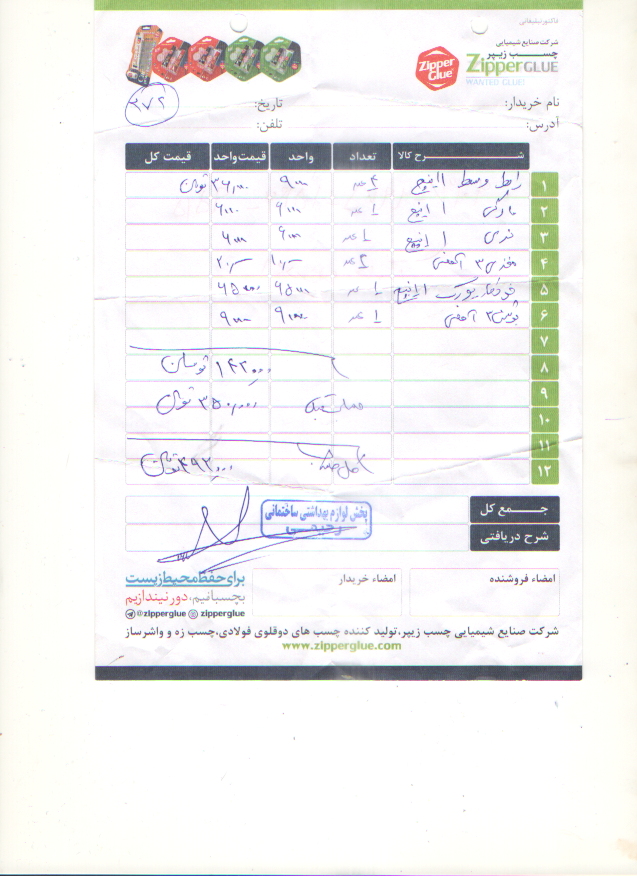 فاکتور تبلیغاتی
شرکت صنایع شیمیایی
چسب زیپر
Zipper GLUE
WANTED GLUE!
Zipper Glue
۳۷۲
نام خریدار: تاریخ:
آدرس: تلفن:
شرح کالا تعداد واحد قیمت واحد قیمت کل
۱ رابط وسط ۱ اینچ ۴ عدد ۹۰۰۰ ۳۶,۰۰۰ تومان
۲ ۱ اینچ ۱ عدد ۶۰۰۰ ۶۰۰۰
۳ نری ۱ اینچ ۱ عدد ۶۰۰۰ ۶۰۰۰
۴ مغزی ۳ آهنی ۲ عدد ۱۰,۰۰۰ ۲۰,۰۰۰
۵ ۱ اینچ ۱ عدد ۶۵۰۰۰ ۶۵۰۰۰
۶ بوشن ۲ آهنی ۱ عدد ۹۰۰۰ ۹۰۰۰
۷
۸ ۱۴۲,۰۰۰ تومان
۹ ۳۵۰,۰۰۰ تومان
۱۰
۱۱
۱۲ ۴۹۲,۰۰۰ تومان
جمع کل
شرح دریافتی
پخش لوازم بهداشتی ساختمانی
رحیمی
امضاء فروشنده امضاء خریدار
برای حفظ محیط زیست
بچسبانیم، دور نیندازیم
@zipperglue zipperglue
شرکت صنایع شیمیایی چسب زیپر، تولید کننده چسب های دوقلوی فولادی، چسب زه و واشرساز
www.zipperglue.com